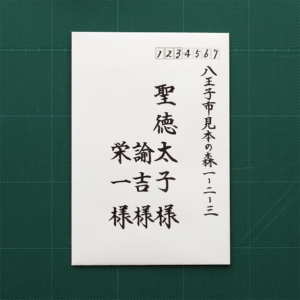 1234567
八王子市見本の森一-二-三
聖徳太子様
諭吉様
栄一様